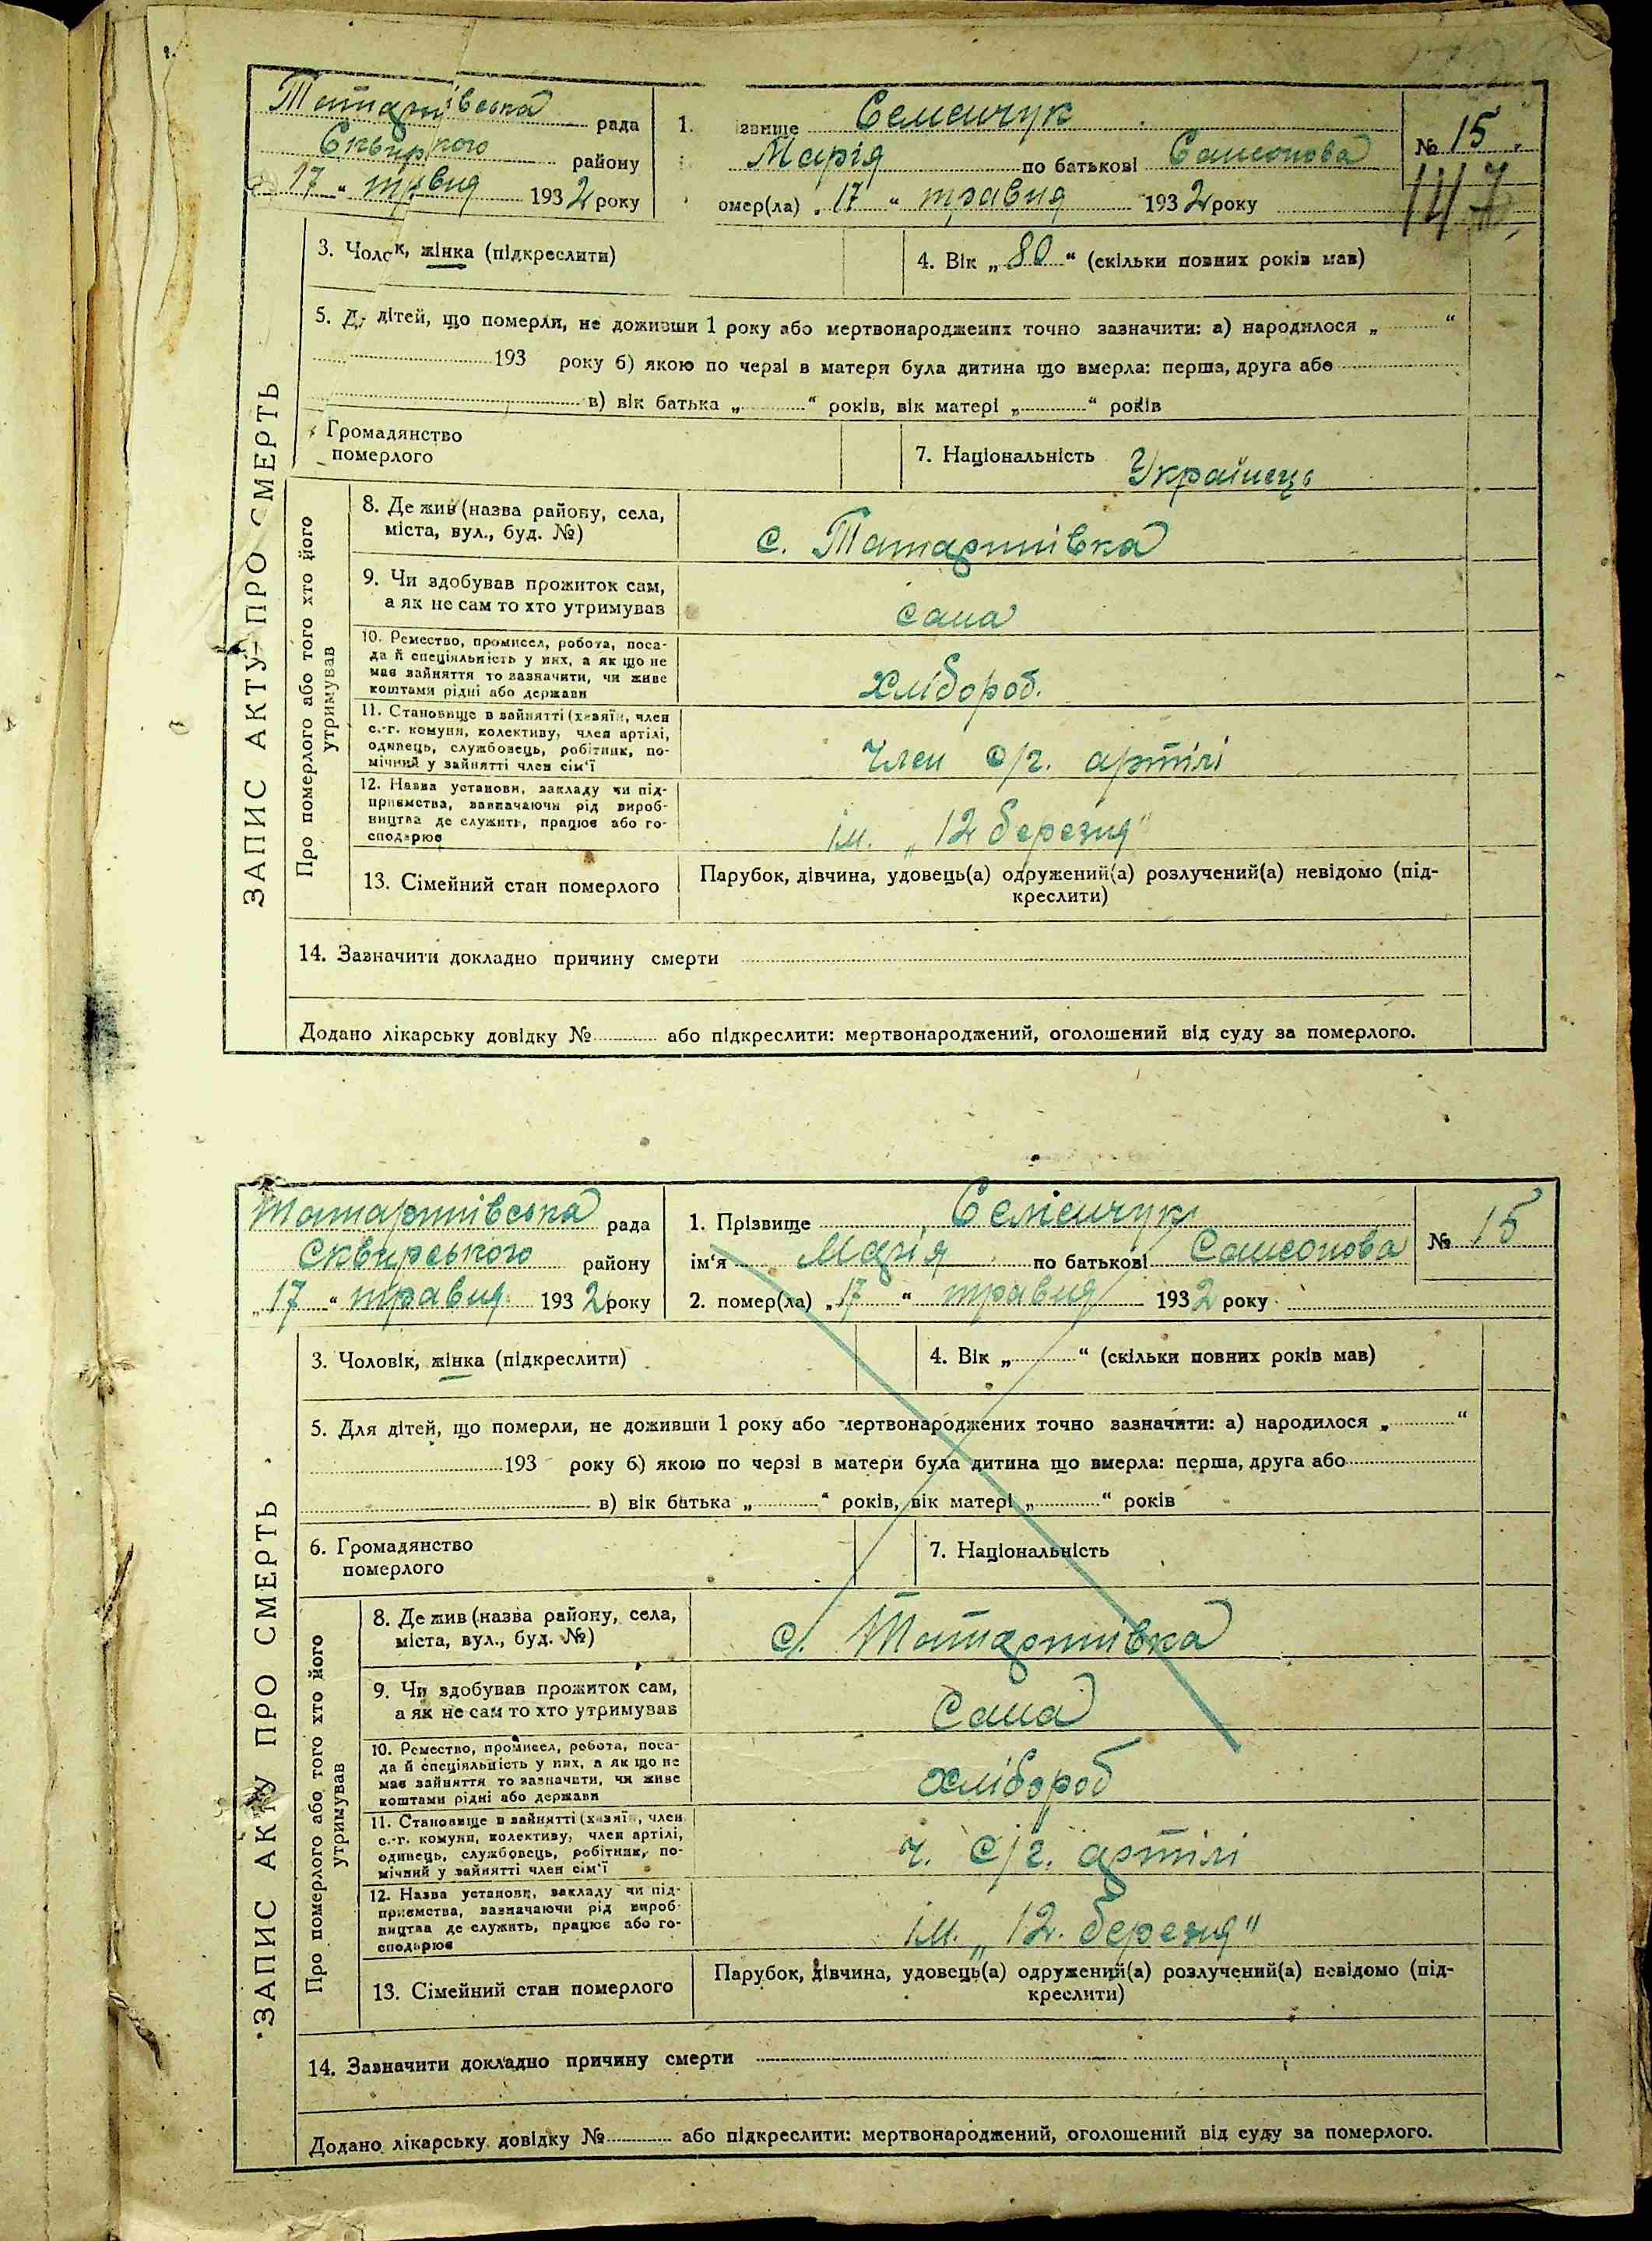 Татаринівська рада
Сквирького району
17 " травня 1932 року
1. ізвище Семенчук
Марія по батькові Самсонова
омер(ла) „ 17 " травня 1932 року
№ 15
147
3. Чолок, жінка (підкреслити)
4. Вік „ 80 " (скільки повних років мав)
5. Д дітей, що померли, не доживши 1 року або мертвонароджених точно зазначити: а) народилося „ "
193 року б) якою по черзі в матери була дитина що вмерла: перша, друга або
в) вік батька „ " років, вік матері „ " років
Громадянство
померлого
7. Національність Українець
ЗАПИС АКТУ ПРО СМЕРТЬ
Про померлого або того хто його
утримував
8. Де жив (назва району, села,
міста, вул., буд. №)
с. Татаринівка
9. Чи здобував прожиток сам,
а як не сам то хто утримував
сама
10. Ремество, промисел, робота, поса-
да й спеціяльність у них, а як що не
має зайняття то зазначити, чи живе
коштами рідні або держави
Хлібороб.
11. Становище в зайнятті (хазяїн, член
с.-г. комуни, колективу, член артілі,
одинець, службовець, робітник, по-
мічний у зайнятті член сім'ї
Член с/г. артілі
12. Назва установи, закладу чи під-
приємства, зазначаючи рід вироб-
ництва де служить, працює або го-
сподарює
ім. „ 12 березня"
13. Сімейний стан померлого
Парубок, дівчина, удовець(а) одружений(а) розлучений(а) невідомо (під-
креслити)
14. Зазначити докладно причину смерти
Додано лікарську довідку № або підкреслити: мертвонароджений, оголошений від суду за померлого.
Татаринівська рада
Сквирського району
„ 17 " травня 1932 року
1. Прізвище Семенчук
ім'я Марія по батькові Самсонова
2. помер(ла) „ 17 " травня 1932 року
№ 15
3. Чоловік, жінка (підкреслити)
4. Вік „ " (скільки повних років мав)
5. Для дітей, що померли, не доживши 1 року або мертвонароджених точно зазначити: а) народилося „ "
193 року б) якою по черзі в матери була дитина що вмерла: перша, друга або
в) вік батька „ " років, вік матері „ " років
6. Громадянство
померлого
7. Національність
ЗАПИС АКТУ ПРО СМЕРТЬ
Про померлого або того хто його
утримував
8. Де жив (назва району, села,
міста, вул., буд. №)
с. Татаринівка
9. Чи здобував прожиток сам,
а як не сам то хто утримував
Сама
10. Ремество, промисел, робота, поса-
да й спеціяльність у них, а як що не
має зайняття то зазначити, чи живе
коштами рідні або держави
Хлібороб
11. Становище в зайнятті (хазяїн, член
с.-г. комуни, колективу, член артілі,
одинець, службовець, робітник, по-
мічний у зайнятті член сім'ї
ч. с/г. артілі
12. Назва установи, закладу чи під-
приємства, зазначаючи рід вироб-
ництва де служить, працює або го-
сподарює
ім. „ 12. березня"
13. Сімейний стан померлого
Парубок, дівчина, удовець(а) одружений(а) розлучений(а) невідомо (під-
креслити)
14. Зазначити докладно причину смерти
Додано лікарську довідку № або підкреслити: мертвонароджений, оголошений від суду за померлого.